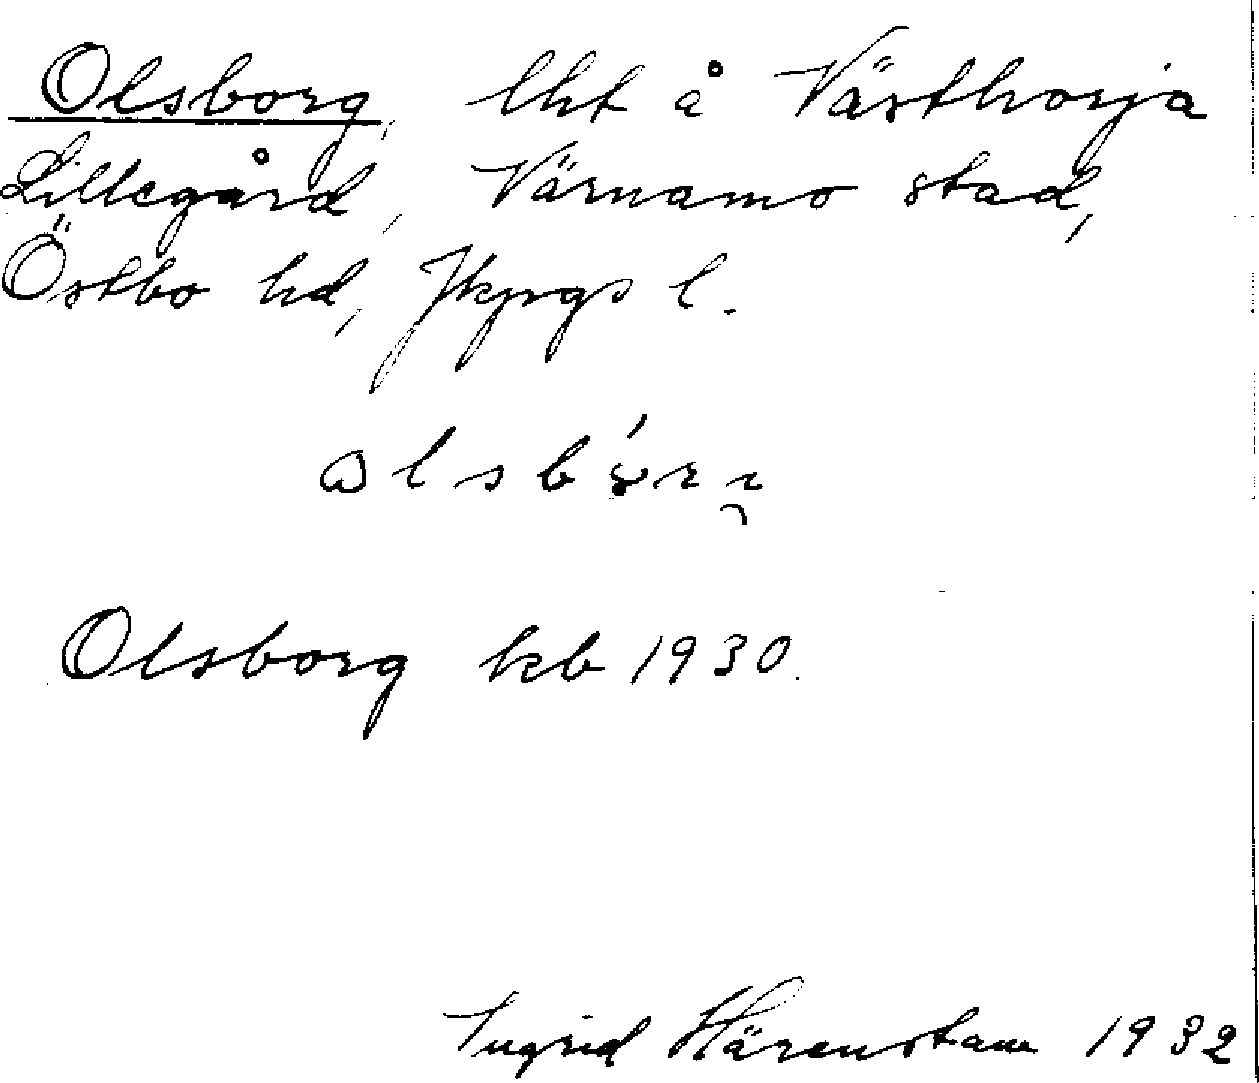 Olsborg, lht å Västhorja
Lillegård, Värnamo stad,
Östbo hd, Jkpgs l.
Olsborg kb 1930.
Ingrid Härenstam 1932